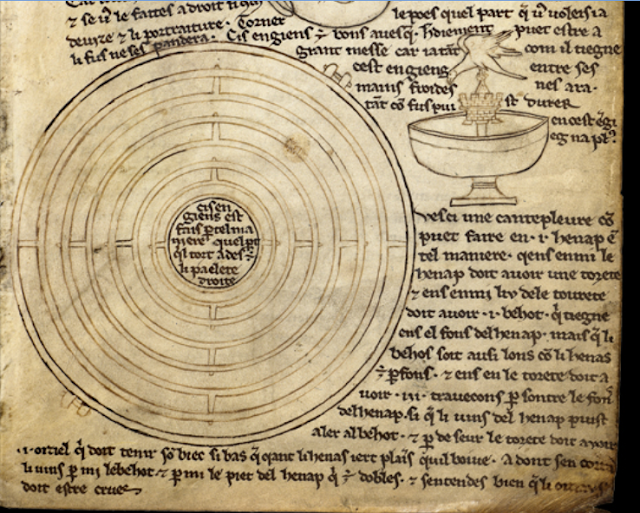 & se vͥ le faites a droit ti
deuize & li portraiture. Torner
le poes quel part q̃ vͥ uolerisia
li fus ne ses pandera.
Cis engiens ÷ bons a uesq. hdiement
puet estre a
grant messe car ia tãt
com il tiegne
cest engieng
entre ses
mains froides
nes ara.
tãt cõ fus pui
st durer
en cest ẽgi
eg na pl
cis en
giens est
fais ꝑ tel ma
niere quel pt
ql tort ades ÷
li paelete
droite
vesci une cantepleure cõ
puet faire en · i · henap ẽ
tel maniere · qens enmi le
henap doit auoir une torete
& ens enmi liu de le tourete
doit auoir · i · behot · q̃ tiegne
ens el fons del henap · mais q̃ li
behos soit ausi lons cõ li henas
÷ ꝑfons · & ens en le torete doit a
uoir · iii · trauecons ꝑ sontre le fons
del henap · si q̃ li uins del henap puist
aler al behot · & ꝑ de seur le torete doit auoir
· i · oiziel q̃ doit tenir sõ biec si bas q̃ qant li henas iert plaĩs quil boiue · a dont sen corra
li uins ꝑ mi le behot · & ꝑ mi le piet del henap q̃ ÷ dobles · & sentendes bien q̃ li oiziaus
doit estre crues